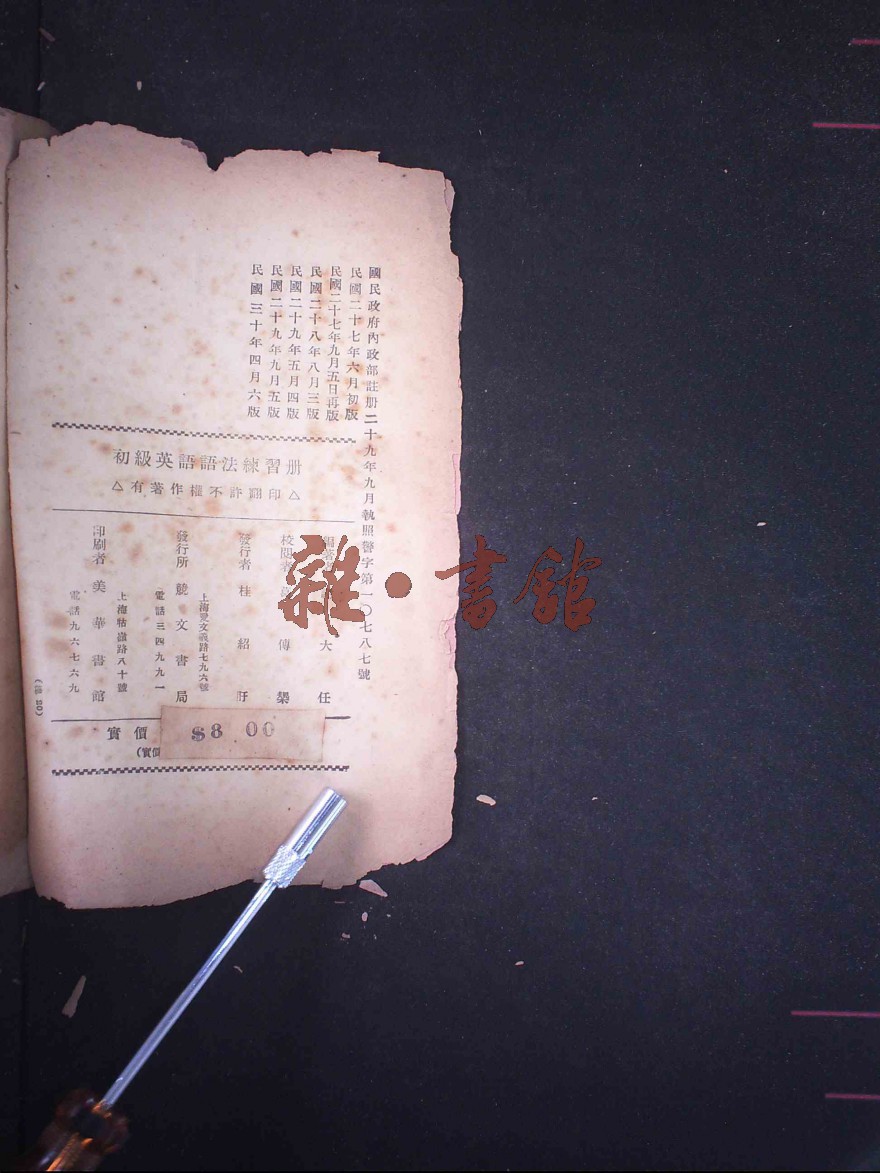 國民政府內政部註册二十九年九月執照警字第一〇七八七號
民國二十七年六月初版
民國二十七年九月五日再版
民國二十八年八月三版
民國二十九年五月四版
民國二十九年九月五版
民國三十年四月六版
初級英語語法練習册
△有著作權不許翻印△
編著者 大任
校閱者 傳槼
發行者 桂紹盱
上海愛文義路七九六號
發行所 競文書局
電話三四九九一
上海牯嶺路八十號
印刷者 美華書館
電話九六七六九
實價 $8 00
(實價
雜·書館